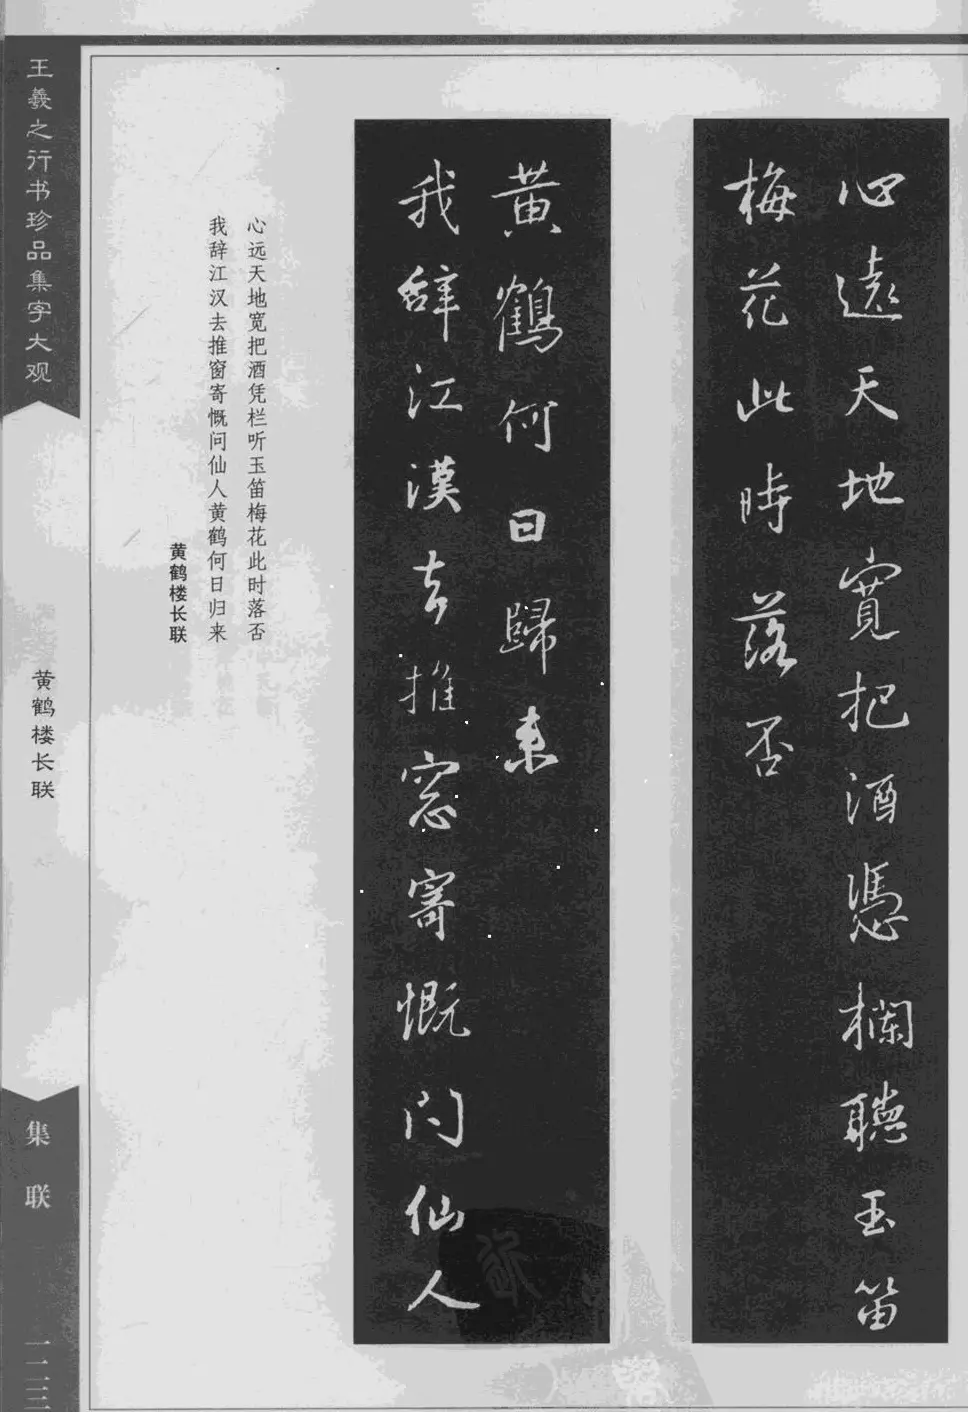 心遠天地寬把酒憑欄聽玉笛
梅花此時落否
我辭江漢去推窓寄慨問仙人
黃鶴何日歸來
心远天地宽把酒凭栏听玉笛梅花此时落否
我辞江汉去推窗寄慨问仙人黄鹤何日归来
黄鹤楼长联
王羲之行书珍品集字大观
黄鹤楼长联
集联